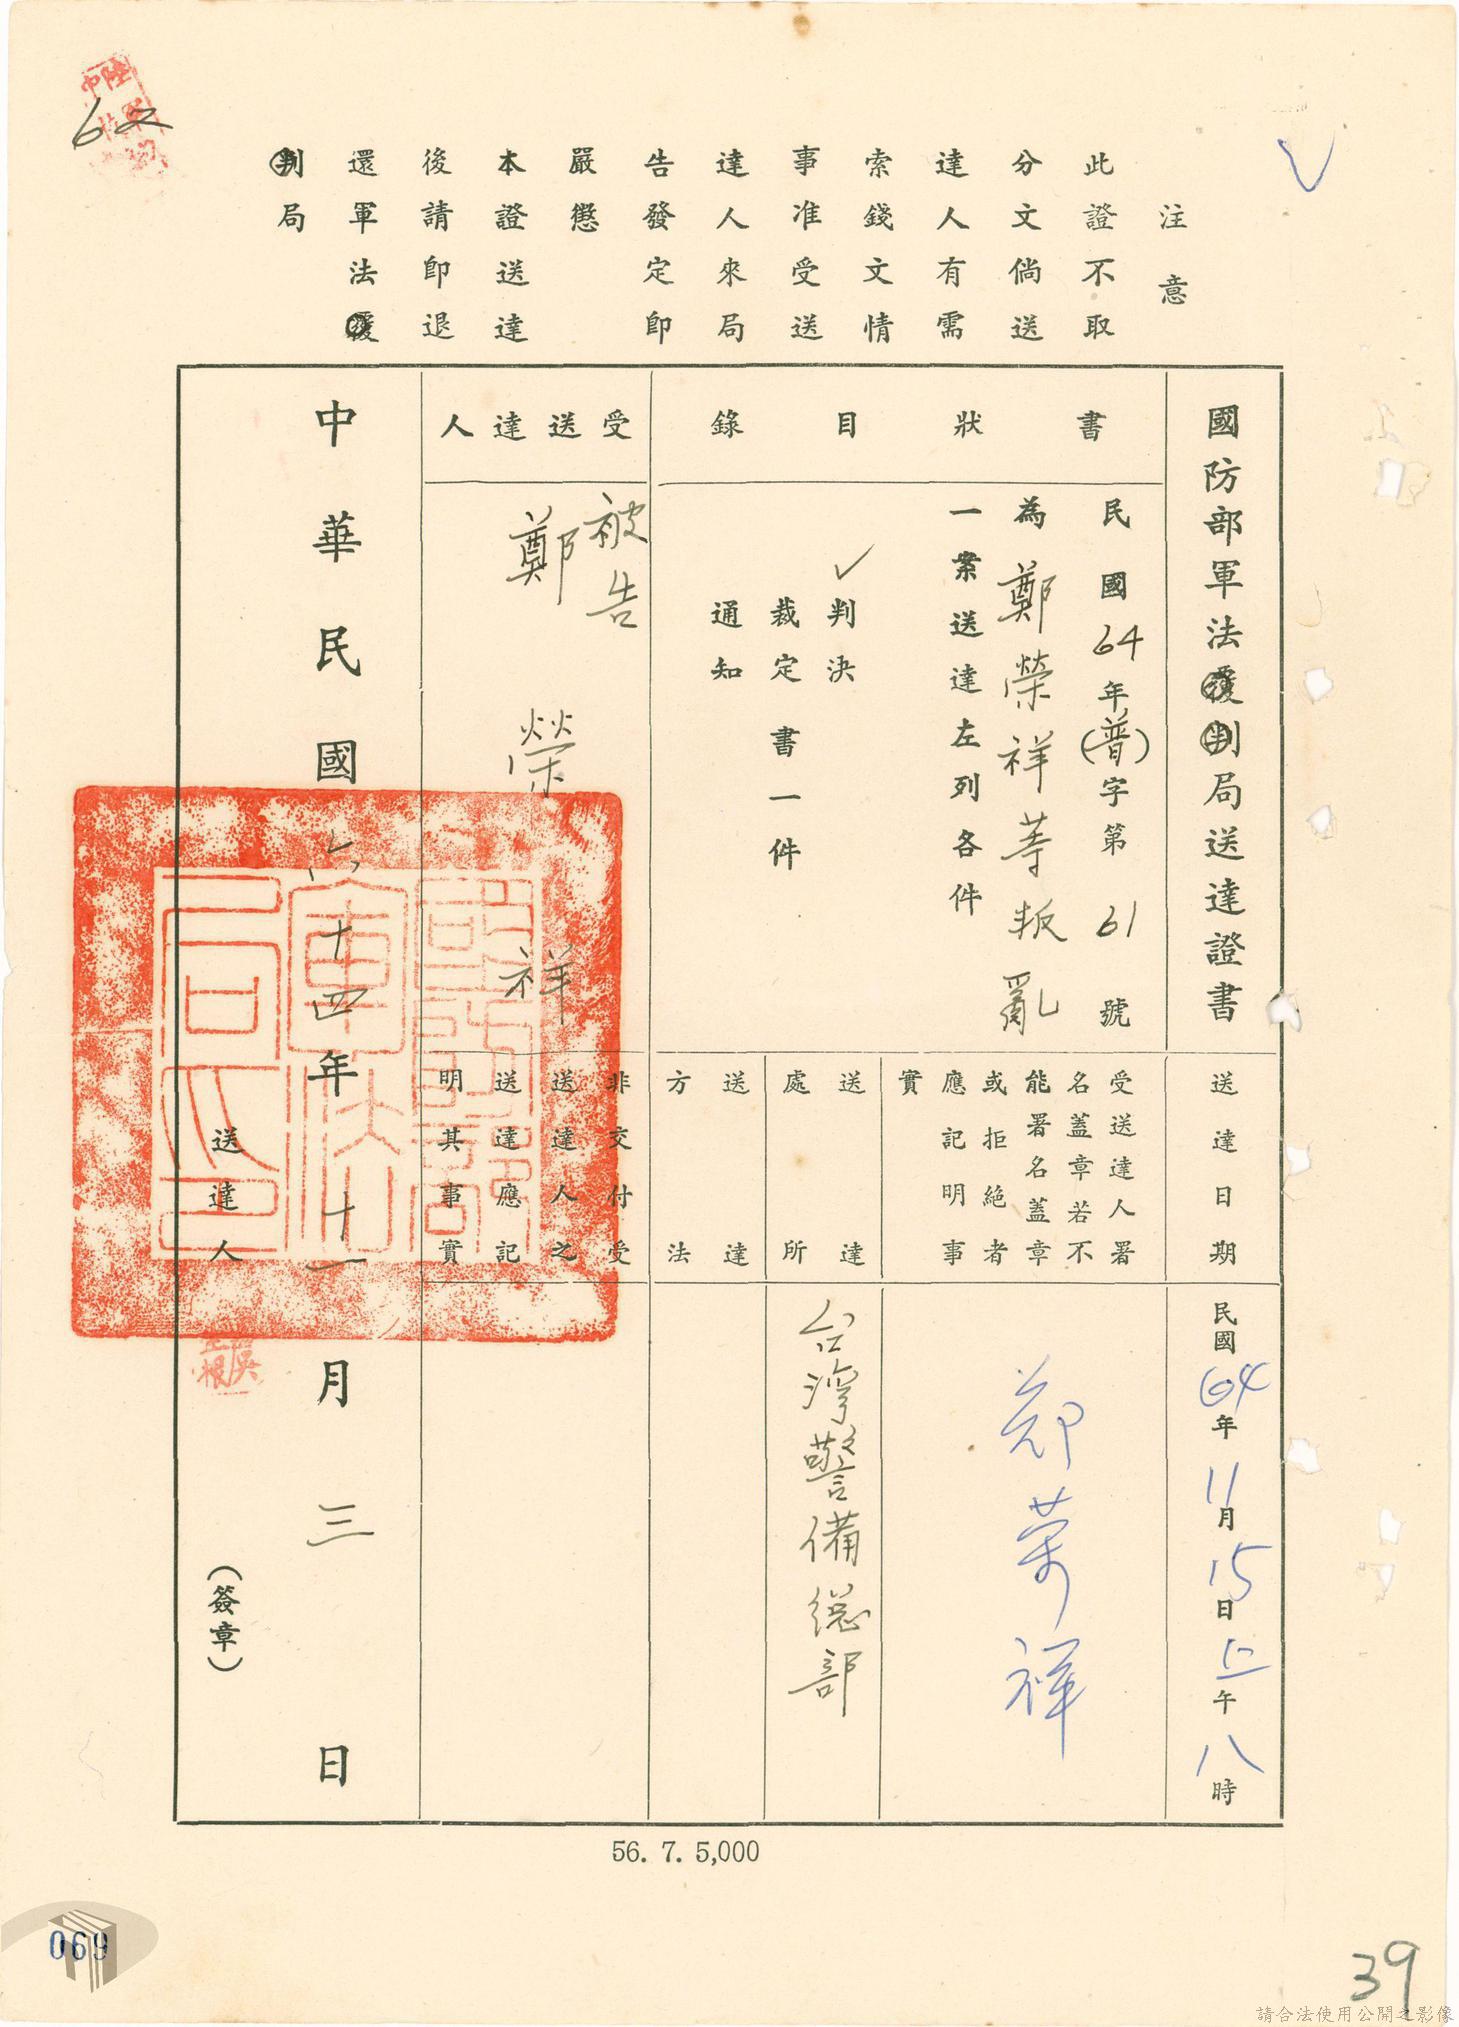 62
注意
此證不取
分文倘送
達人有需
索錢文情
事准受送
達人來局
告發定即
嚴懲
本證送達
後請即退
還軍法覆
判局
國防部軍法覆判局送達證書
書狀目錄
民國64年(普)字第61號
為鄭榮祥等叛亂
一案送達左列各件
✓判決
裁定書一件
通知
受送達人
被告
鄭榮祥
送達日期
民國64年11月15日上午八時
受送達人署
名蓋章若不
能署名蓋章
或拒絕者
應記明事
實
鄭榮祥
送達
處所
台灣警備總部
送達
方法
非交付受
送達人之
送達應記
明其事實
中華民國六十四年十一月三日
送達人
(簽章)
56. 7. 5,000
069
39
請合法使用公開之影像